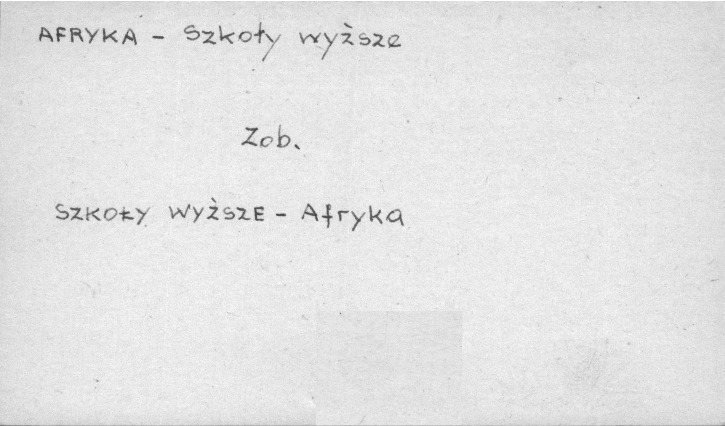 AFRYKA - Szkoły wyższe
Zob.
SZKOŁY WYŻSZE - Afryka